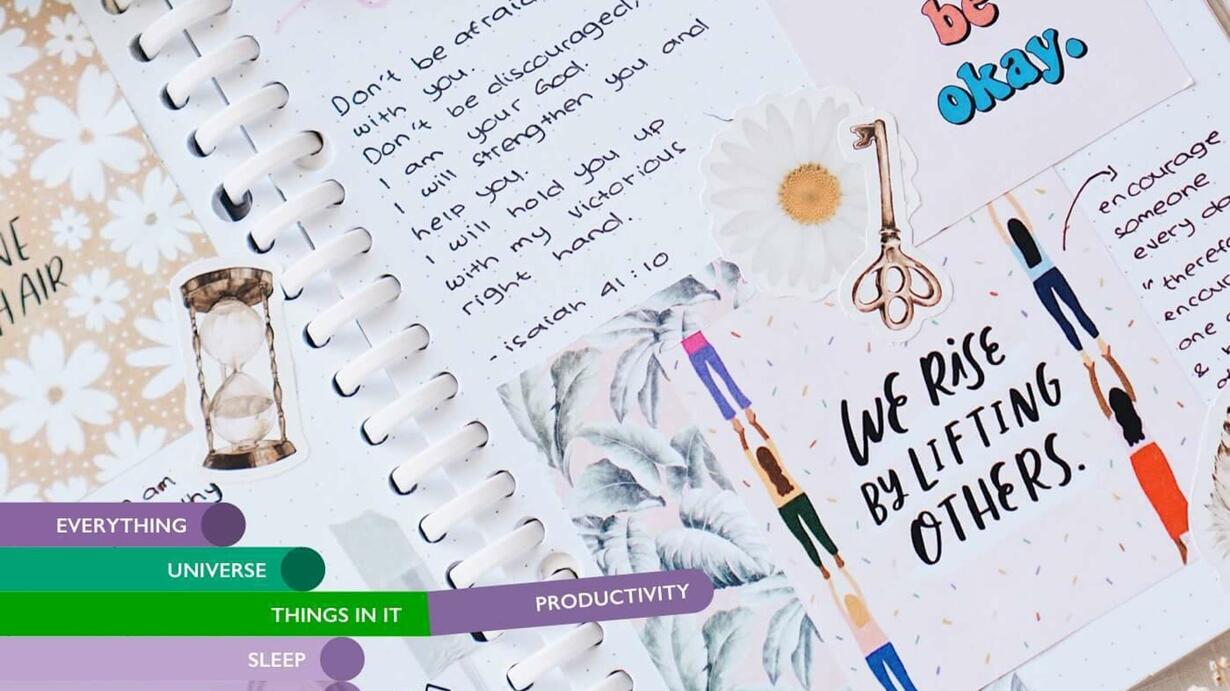 Don't be afraid
with you.
Don't be discouraged,
I am your God.
I will strengthen you and
help you.
I will hold you up
with my victorious
right hand.
- isaiah 41:10
be
okay.
encourage
someone
every
"
one
&
WE RISE
BY LIFTING
OTHERS.
HAIR
am
EVERYTHING
UNIVERSE
THINGS IN IT
PRODUCTIVITY
SLEEP